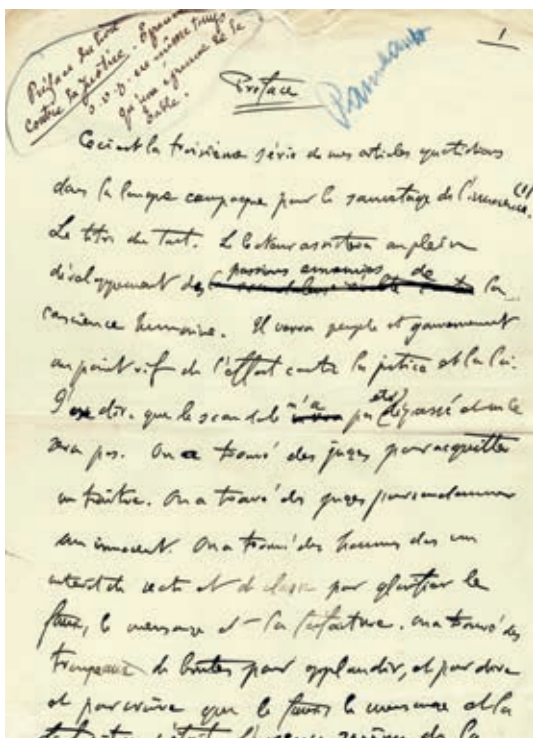 Préface du livre
contre la Justice. Épreuve
S.V.P. en même temps
qu'une épreuve de la
table.
1
Preface
Ceci est la troisième série de mes articles quotidiens
dans la longue campagne pour le sauvetage de l'innocence. (1)
Le titre dit tout. Le lecteur assistera au plein
développement des passions ennemies de la
conscience humaine. Il verra peuple et gouvernement
au point vif de l'effort contre la justice et la loi.
J'ose dire que le scandale n'a pas été dépassé et ne le
sera pas. On a trouvé des juges pour acquitter
un traître. On a trouvé des juges pour condamner
un innocent. On a trouvé des hommes dans un
intérêt de secte et de classe pour glorifier le
faux, le mensonge et la forfaiture. On a trouvé des
troupeaux de brutes pour applaudir, et pour dire
et pour croire que le faux, le mensonge et la
de la